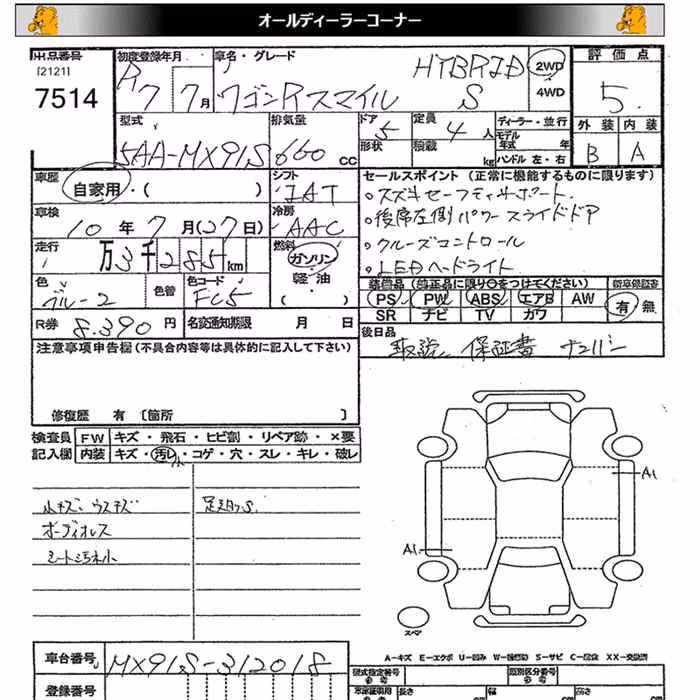 オールディーラーコーナー
出品番号
[2121]
7514
初度登録年月
R7 7月
車名・グレード
ワゴンRスマイル
HYBRID S
2WD
4WD
評価点
5
外装 内装
B A
型式
5AA-MX91S
排気量
660 CC
ドア
5
形状
定員
4 人
積載
kg
ディーラー・並行
モデル年式 年
ハンドル 左・右
車歴
自家用・( )
シフト
IAT
車検
10年7月(27日)
冷房
AAC
走行
万3千285km
燃料
ガソリン
軽油
( )
色
ブルー2
色替
色コード
FC5
R券 8.390円
名変通知期限 月 日
セールスポイント(正常に機能するものに限ります)
○スズキセーフティサポート
○後席左側パワースライドドア
○クルーズコントロール
○LEDヘッドライト
装備品(純正品に限り○をつけてください)
新車保証書
PS PW ABS エアB AW
SR ナビ TV カワ
有 無
後日品
取説 保証書 ナンバー
注意事項申告欄(不具合内容等は具体的に記入して下さい)
修復歴 有〔箇所 〕
検査員記入欄
FW キズ・飛石・ヒビ割・リペア跡・×要
内装 キズ・汚レ・コゲ・穴・スレ・キレ・破レ
小キズ ウスキズ
オーディオレス
シート汚れ小
A1
A1
スペア
A-キズ E-エクボ U-凹ミ W-補修跡 S-サビ C-腐蝕 XX-交換済
車台番号
MX91S-312018
登録番号
型式指定番号
参考
類別区分番号
参考
長さ
幅
高さ